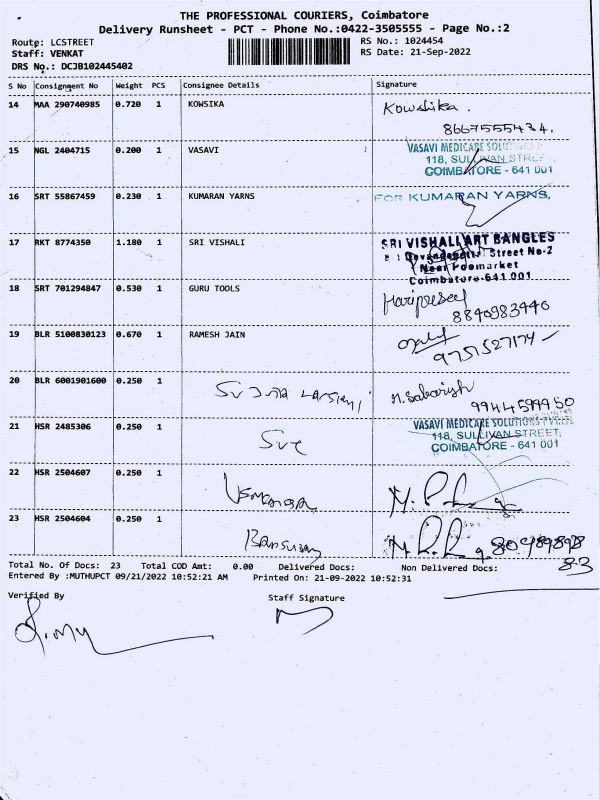 THE PROFESSIONAL COURIERS, Coimbatore
Delivery Runsheet - PCT - Phone No.:0422-3505555 - Page No.:2
Route: LCSTREET
Staff: VENKAT
DRS No.: DCJB102445402
RS No.: 1024454
RS Date: 21-Sep-2022
S No Consignment No Weight PCS Consignee Details Signature
14 MAA 290740985 0.720 1 KOWSIKA Kowsika.
8667555434.
15 NGL 2404715 0.200 1 VASAVI
VASAVI MEDICARE
118, SULLIVAN STREET
COIMBATORE - 641 001
16 SRT 55867459 0.230 1 KUMARAN YARNS FOR KUMARAN YARNS,
17 RKT 8774350 1.180 1 SRI VISHALI
SRI VISHALI ART BANGLES
Street No-2
Near Poomarket
Coimbatore-641 001
18 SRT 701294847 0.530 1 GURU TOOLS
8840983440
19 BLR 5100830123 0.670 1 RAMESH JAIN
9751527174
20 BLR 6001901600 0.250 1 M. Sabarish
9944599950
21 HSR 2485306 0.250 1
VASAVI MEDICARE SOLUTIONS PVT LTD
118, SULLIVAN STREET,
COIMBATORE - 641 001
22 HSR 2504607 0.250 1
23 HSR 2504604 0.250 1
Total No. Of Docs: 23 Total COD Amt: 0.00 Delivered Docs: Non Delivered Docs:
Entered By :MUTHUPCT 09/21/2022 10:52:21 AM Printed On: 21-09-2022 10:52:31
Verified By Staff Signature